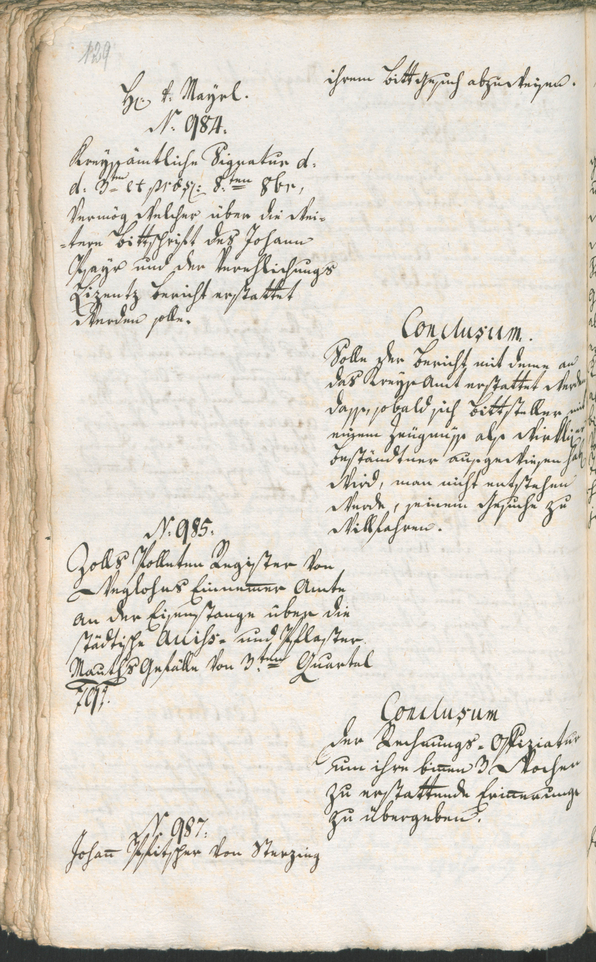 129
ihrem Bittgesuch abzuweisen.
H: v: Mayrl.
N: 984.
Kreysämtliche Signatur d:
d: 3ten et präs: 8ten 8br,
vermög welcher über die wei-
-tere Bittschrift des Johann
Mayr und der Verehlichungs
Lizentz Bericht erstattet
werden solle.
Conclusum.
Solle der Bericht mit deme an
das KreysAmt erstattet werden
dass, sobald sich Bittsteller mit
einem Zeugnisse als wirklicher
Beständtner ausgewiesen haben
wird, man nicht entstehen
werde, seinem Gesuche zu
willfahren.
N: 985.
Zolls Polleten Register von
Weglohns Einnehmer Amte
an der Eisenstange über die
städtische Aufschlags- und Pflaster
Mauths Gefälle von 3ten Quartal
791.
Conclusum
der Rechnungs-Offiziatur
um ihre binnen 3 Wochen
zu erstattende Erinnerung
zu übergeben.
N: 987.
Johann Pfitscher von Sterzing